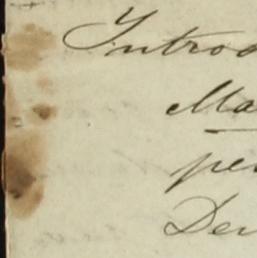 Introd
Ma
per
Der